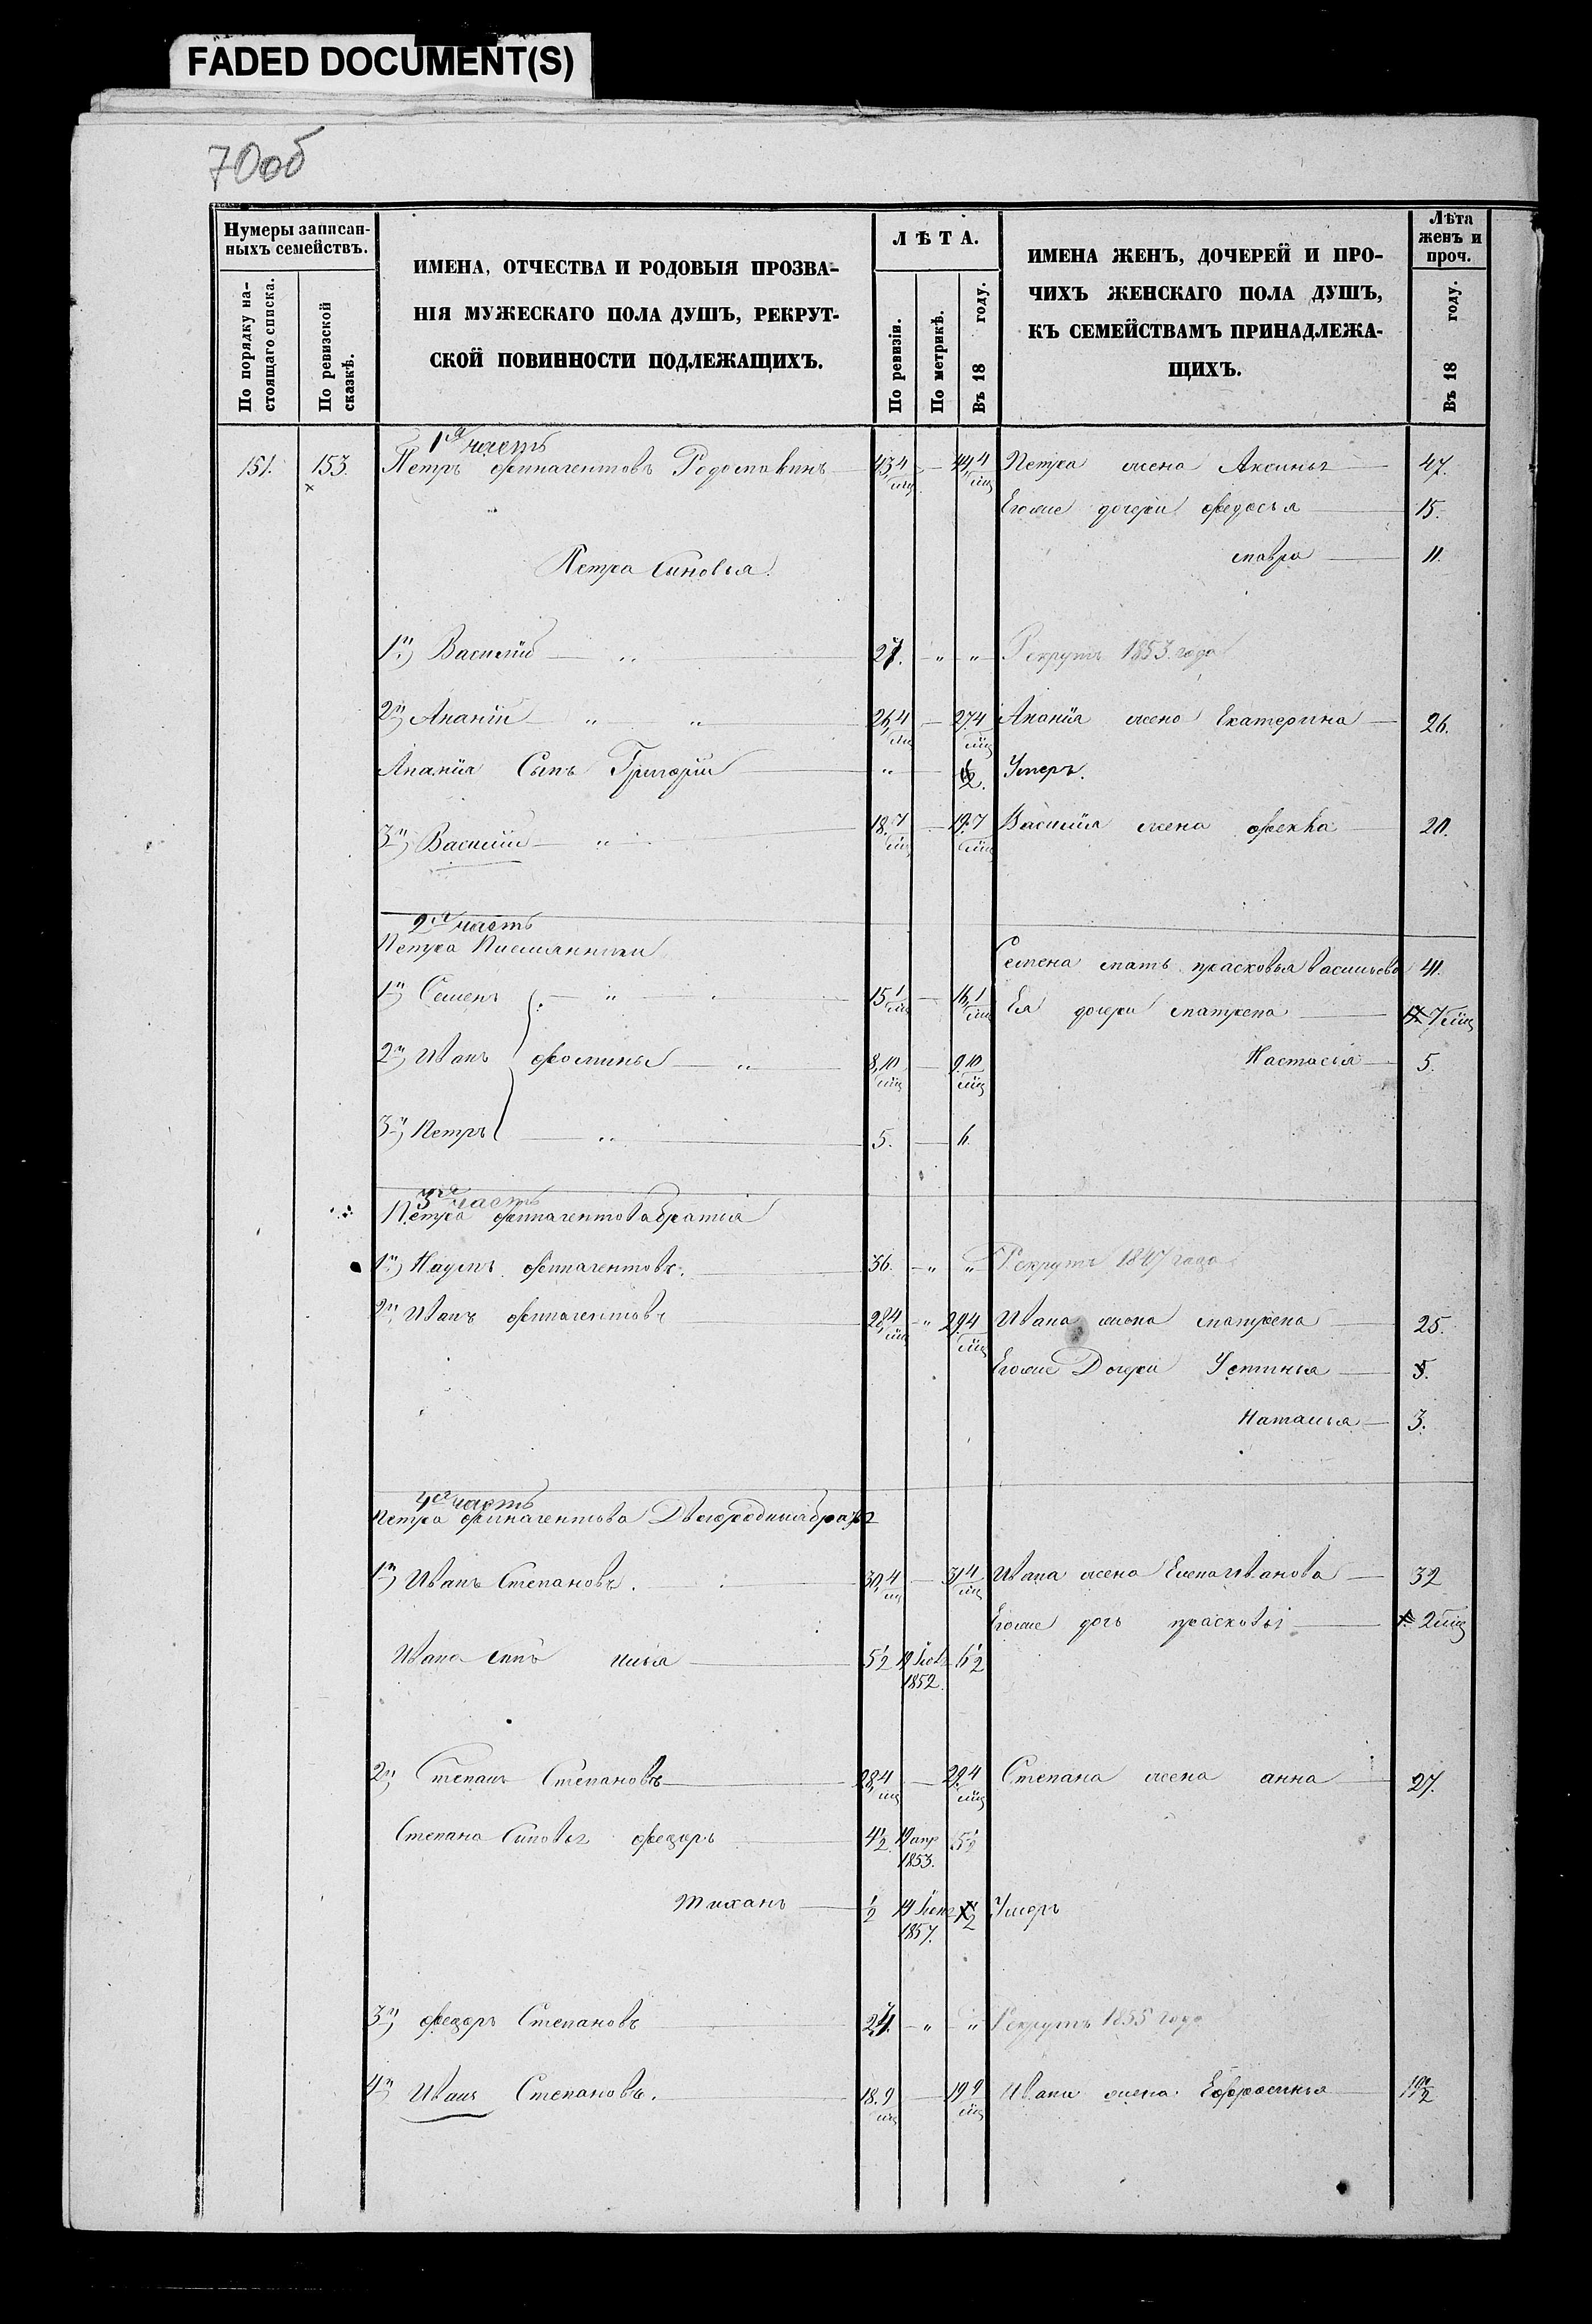 FADED DOCUMENT(S)
70об
Нумеры записан-
ныхъ семействъ.
По порядку на-
стоящаго списка.
По ревизской
сказкѣ.
ИМЕНА, ОТЧЕСТВА И РОДОВЫЯ ПРОЗВА-
НІЯ МУЖЕСКАГО ПОЛА ДУШЪ, РЕКРУТ-
СКОЙ ПОВИННОСТИ ПОДЛЕЖАЩИХЪ.
ЛѢТА.
По ревизіи.
По метрикѣ.
Въ 18 году.
ИМЕНА ЖЕНЪ, ДОЧЕРЕЙ И ПРО-
ЧИХЪ ЖЕНСКАГО ПОЛА ДУШЪ,
КЪ СЕМЕЙСТВАМЪ ПРИНАДЛЕЖА-
ЩИХЪ.
Лѣта
женъ и
проч.
Въ 18 году.
1я часть
151. 153. Петръ Финагентовъ 43,4 мц 44,4 мц Петра жена Аксинья 47.
Егоже дочери Федосья 15.
Мавра 11.
Петра Сыновья.
1й) Василій 27. " " Рекрутъ 1853. года
2й) Ананій " " 26,4 мц 27,4 мц Ананія жена Екатерина 26.
Ананія Сынъ Григорій " Умеръ.
3й) Василій " 18,7 мц 19,7 мц Василія жена Фекла 20.
2я часть
Петра Племянники
Семена мать Прасковья Васильева 41.
1й) Семенъ " 15,1 мц 16,1 мц Ея дочери Матрена 7 мц
2й) Иванъ Фомины " 8,10 мц 9,10 мц Настасья 5.
3й) Петръ " 5. 6.
3я часть
Петра Финагентова братья
1й) Наумъ Финагентовъ. 36. " " Рекрутъ 1847 года
2й) Иванъ Финагентовъ 28,4 мц " 29,4 мц Ивана жена Матрена 25.
Егоже Дочери Устинья 5.
Наталья 3.
4я часть
Петра Финагентова Двоюродныя братья
1й) Иванъ Степановъ. 30,4 мц 31,4 мц Ивана жена Елена Иванова 32
Егоже дочь Прасковья 2 мц
Ивана сынъ Илья 5 1/2 1852. 6 1/2
2й) Степанъ Степановъ 28,4 мц 29,4 мц Степана жена Анна 27.
Степана Сыновья Федоръ 4 1/2 апр 1853. 5 1/2
Тиханъ 1/2 1857. Умеръ
3й) Федоръ Степановъ 24. " " Рекрутъ 1855 года
4й) Иванъ Степановъ. 18,9 мц 19,9 мц Ивана жена Ефросинья 19 1/2